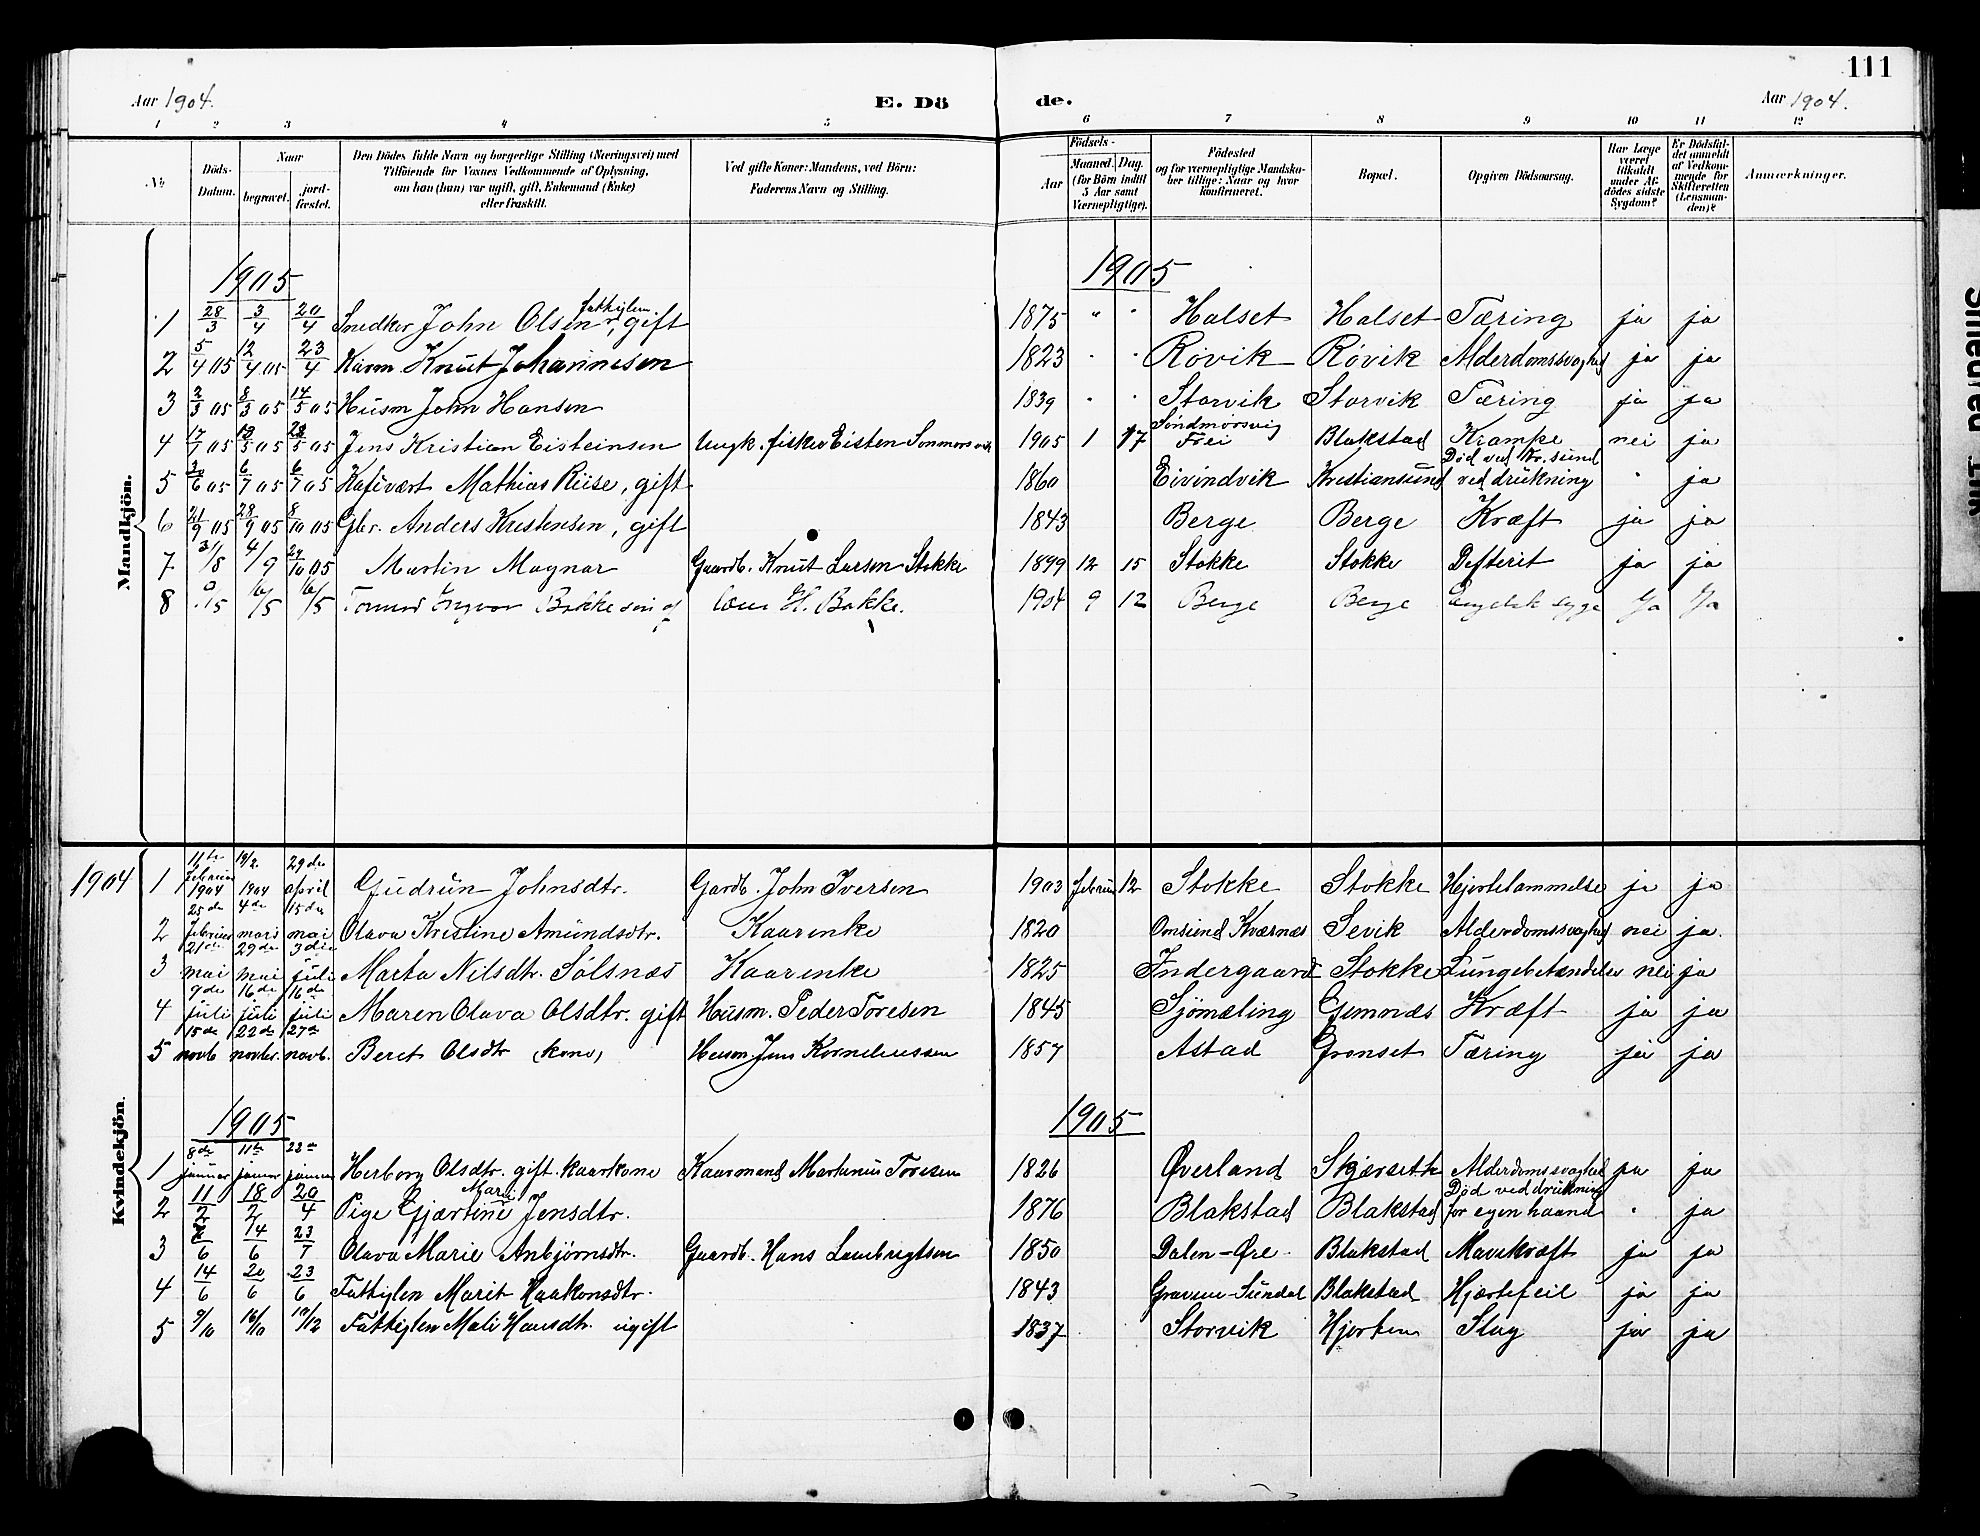 111
Aar 1904. E. Dö de. Aar 1904.
1 2 3 4 5 6 7 8 9 10 11 12
No. Döds-Datum. Naar begravet. jord-fæstet. Den Dödes fulde Navn og borgerlige Stilling (Næringsvei) med Tilföiende for Voxnes Vedkommende af Oplysning, om han (hun) var ugift, gift, Enkemand (Enke) eller fraskilt. Ved gifte Koner: Mandens, ved Börn: Faderens Navn og Stilling. Födsels- Aar Maaned. Dag. (for Börn indtil 5 Aar samt Værnepligtige). Födested og for værnepligtige Mandskaber tillige: Naar og hvor konfirmeret. Bopæl. Opgiven Dödsaarsag. Har Læge været tilkaldt under Afdödes sidste Sygdom? Er Dödsfaldet anmeldt af Vedkommende for Skifteretten (Lensmanden)? Anmærkninger.
Mandkjön.
1905 1905
1 28/3 3/4 20/4 Snedker John Olsen, fattiglem. gift 1875 " " Halset Halset Tæring ja ja
2 5/4 05 12/4 05 23/4 Kaarm Knut Johannesen 1823 " " Røvik Røvik Alderdomssvaghed ja ja
3 2/3 05 8/3 05 14/5 05 Husm John Hansen 1839 " " Storvik Storvik Tæring ja ja
4 17/7 05 05 28/5 05 Jens Kristian Eisteinsen Ungk. fisker Eisten 1905 1 17 Søndmørsvig Frei Blakstad Krampe nei ja
5 05 6/7 05 6/7 05 Kafevært Mathias Riise, gift 1860 Eivindvik Kristiansund Død ved Kr.sund ved drukning " ja
6 21/9 05 28/9 05 8/10 05 Gbr. Anders Kristensen, gift 1843 Berge Berge Kræft ja ja
7 31/8 4/9 29/10 05 Martin Magnar Gaardb. Knut Larsen Stokke 1899 12 15 Stokke Stokke Defterit ja ja
8 /5 16/5 16/5 Ingvar Bakke søn af H. Bakke. 1904 9 12 Berge Berge Engelsk syge Ja Ja
Kvindekjön.
1904 1 11te februar 1904 19/2. 1904 29de april Gudrun Johnsdtr. Gardb. John Iversen 1903 februar 12 Stokke Stokke Hjertelammelse ja ja
2 25de februar 4de mars 15de mai Olava Kristine Amundsdtr. Kaarenke 1820 Omsund Kværnæs Sevik Alderdomssvaghed nei ja.
3 21de mai 29de mai 3die juli Marta Nilsdtr. Sølsnæs Kaarenke 1825 Indergaard Stokke Lungebetændelse nei ja
4 9de juli 16de juli 16de juli Maren Olava Olsdtr. gift Husm. Peder Toresen 1845 Sjömæling Gimnæs Kræft ja ja
5 15de novb 22de novbr. 27de novb. Beret Olsdtr (kone) Husm. Jens Korneliussen 1857 Astad Grønset Tæring ja ja
1905 1905
1 8de januar 11te januar 22de januar Herborg Olsdtr. gift. kaarkone Kaarmand Martinus Toresen 1826 Øverland Skjærseth Alderdomssvaghed ja ja
2 11/2 18/2 20/4 Pige Gjærtine Marie Jensdtr. 1876 Blakstad Blakstad Død ved drukning for egen haand " ja
3 /6 14/6 23/7 Olava Marie Anbjørnsdtr. Gaardb. Hans Lambregtsen 1850 Dalen - Øre Blakstad Mavekræft ja ja
4 14/6 20/6 23/6 Fattiglem Marit Haakonsdtr. 1843 Sundal Blakstad Hjærtefeil ja ja
5 9/10 16/10 10/12 Fattiglem Mali Hansdtr. ugift 1837 Storvik Hjorten Slag ja ja